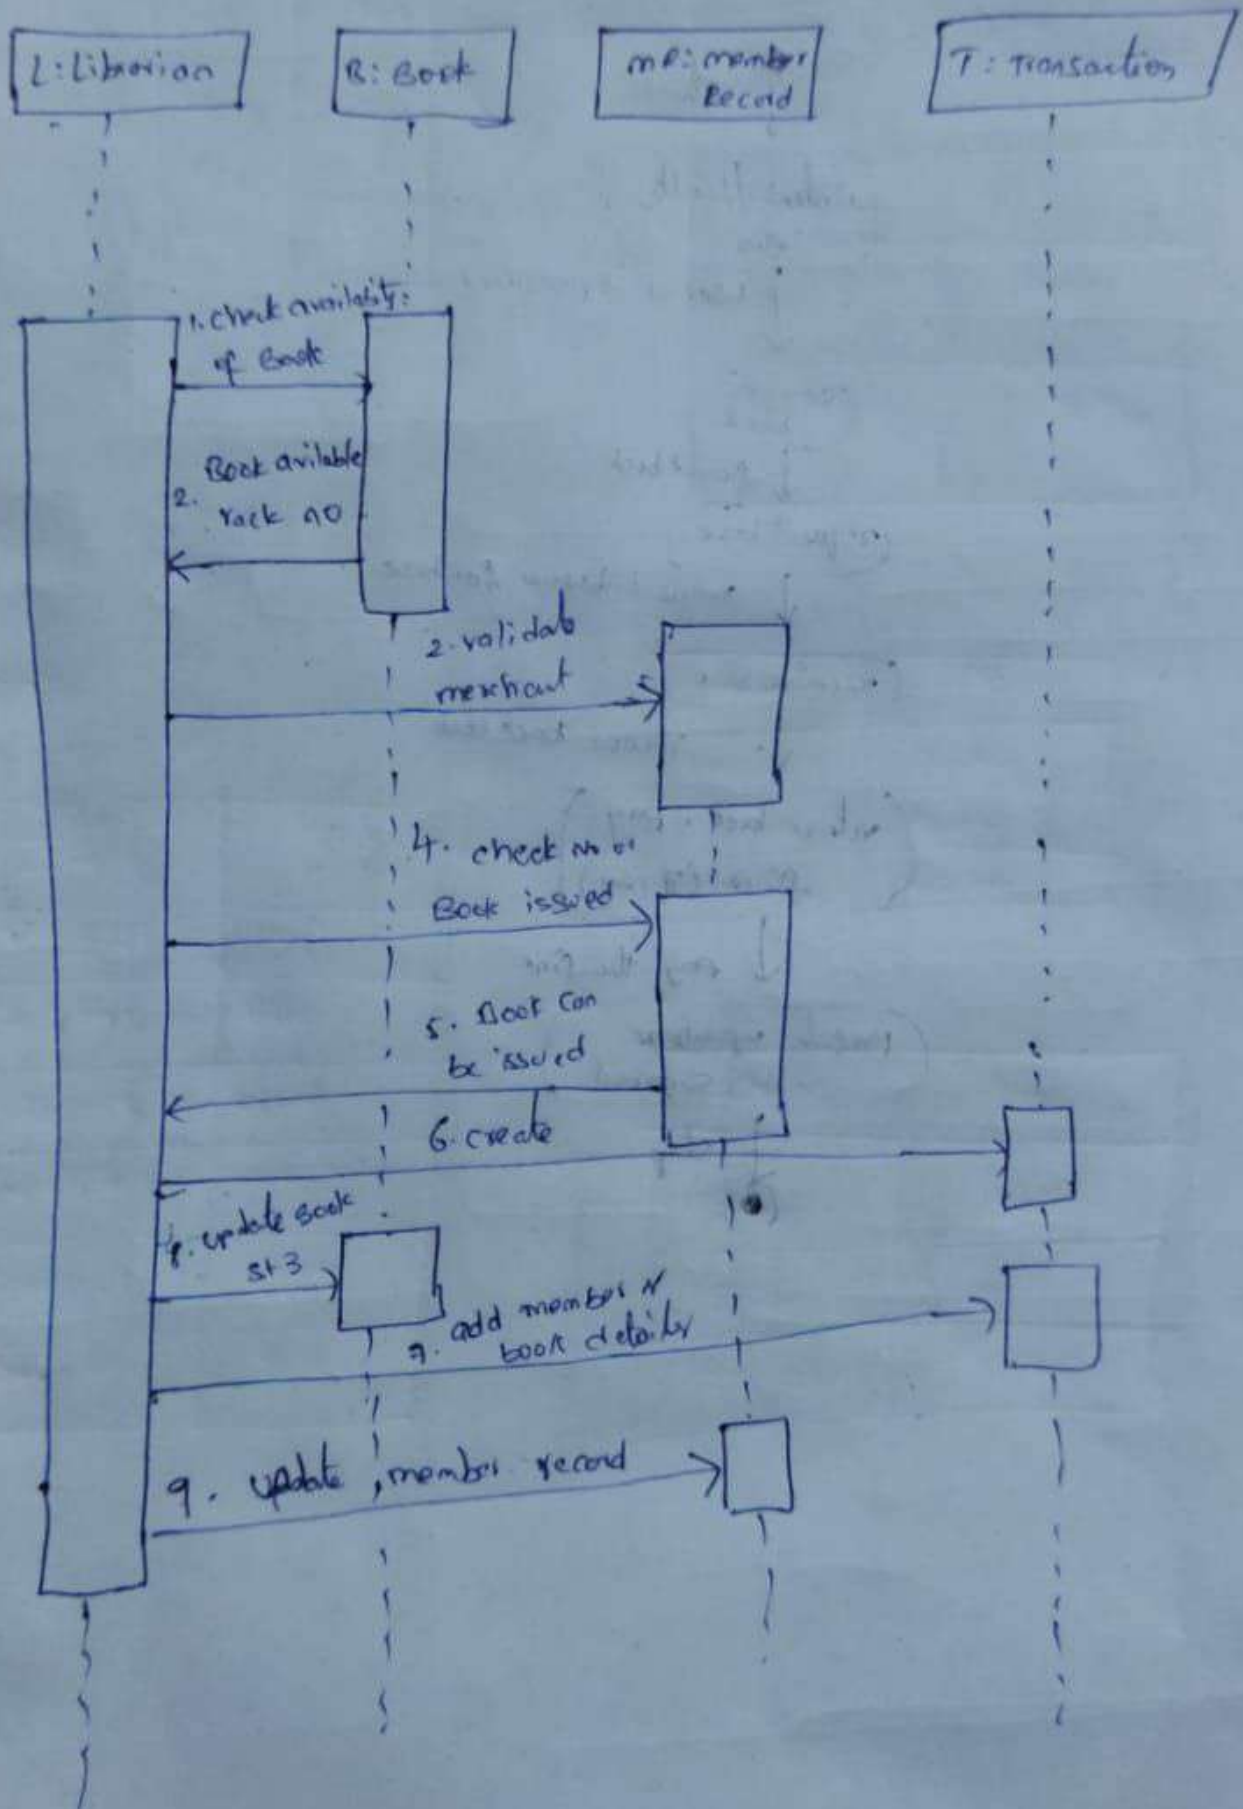 L: Librarian
B: Book
MR: member
Record
T: Transaction
1. check availability
of Book
Book avilable
2.
rack no
2. validate
merchant
4. check no of
Book issued
5. Book can
be issued
6. create
8. update Book
7. add member
book details
9. update member record